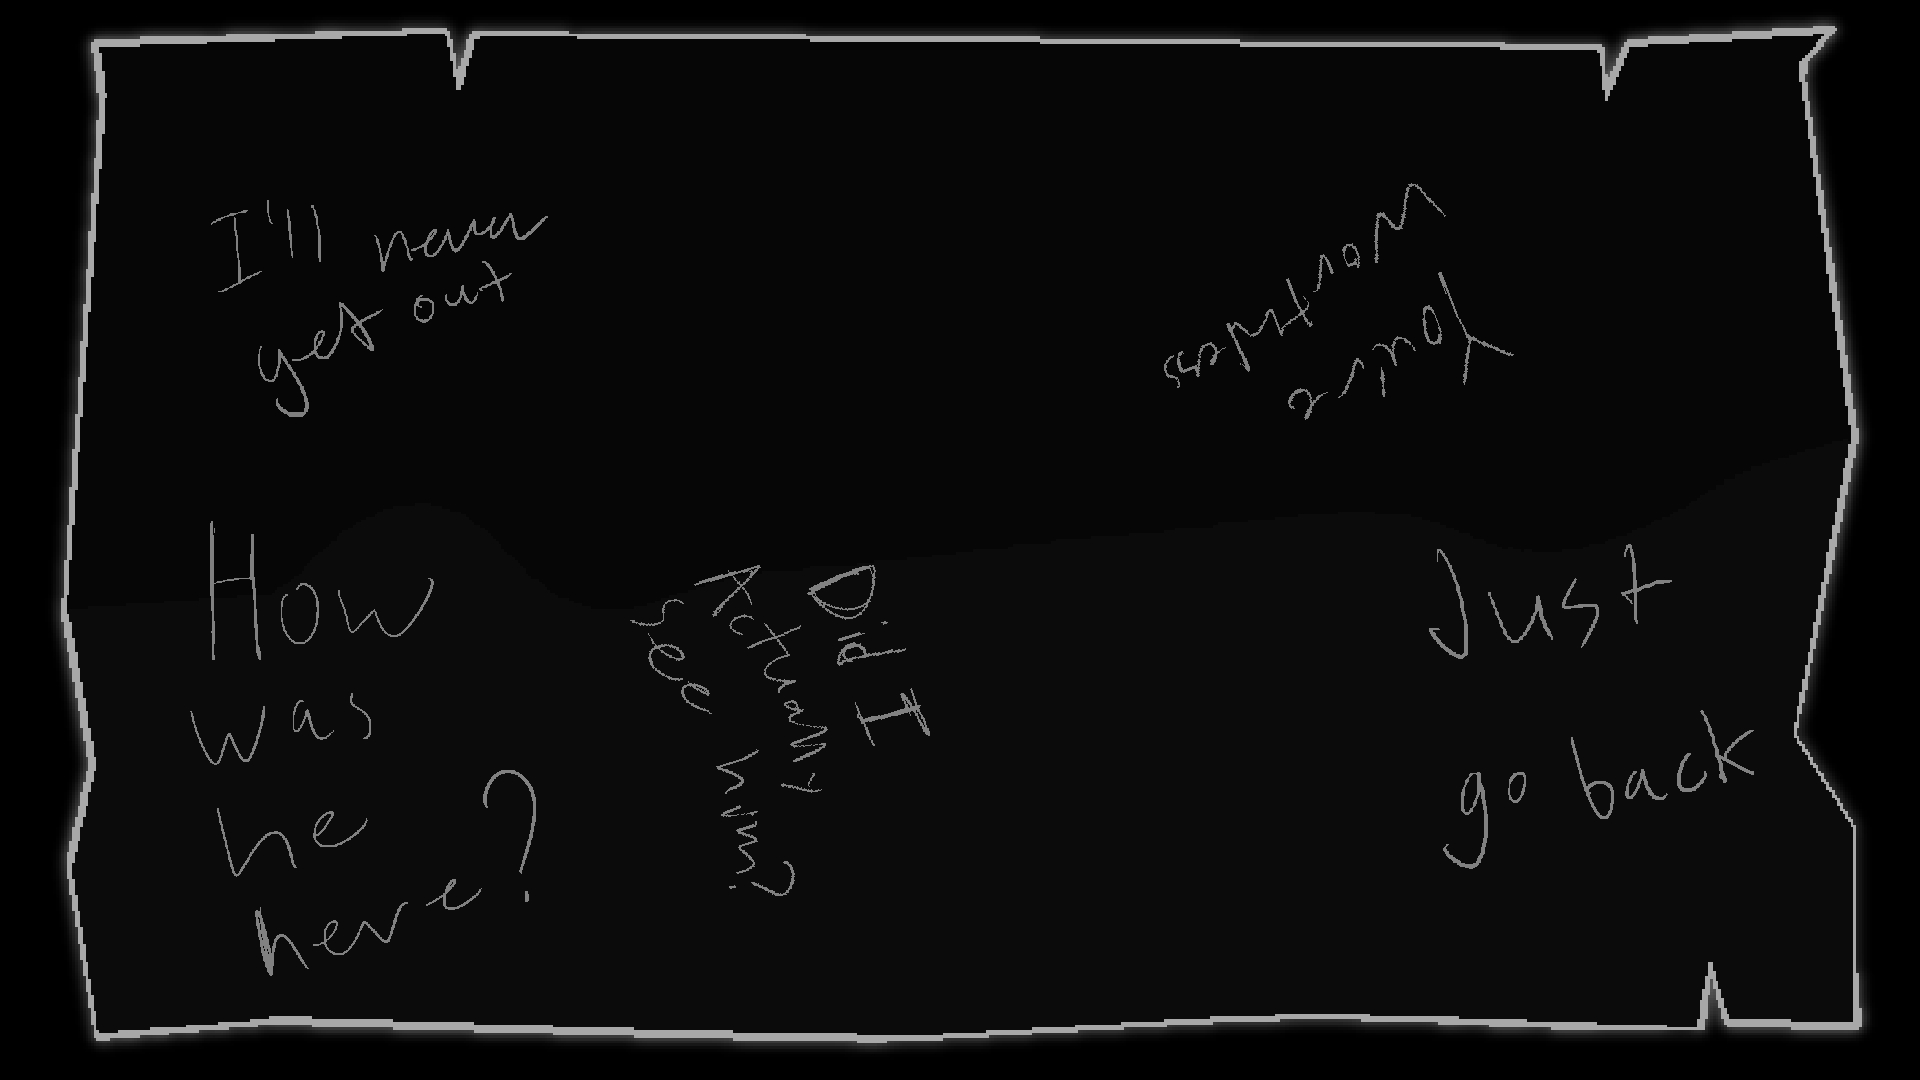 I'll never
get out
Youre
Worthless
How
was
he
here?
Did I
Actually
see him?
Just
go back